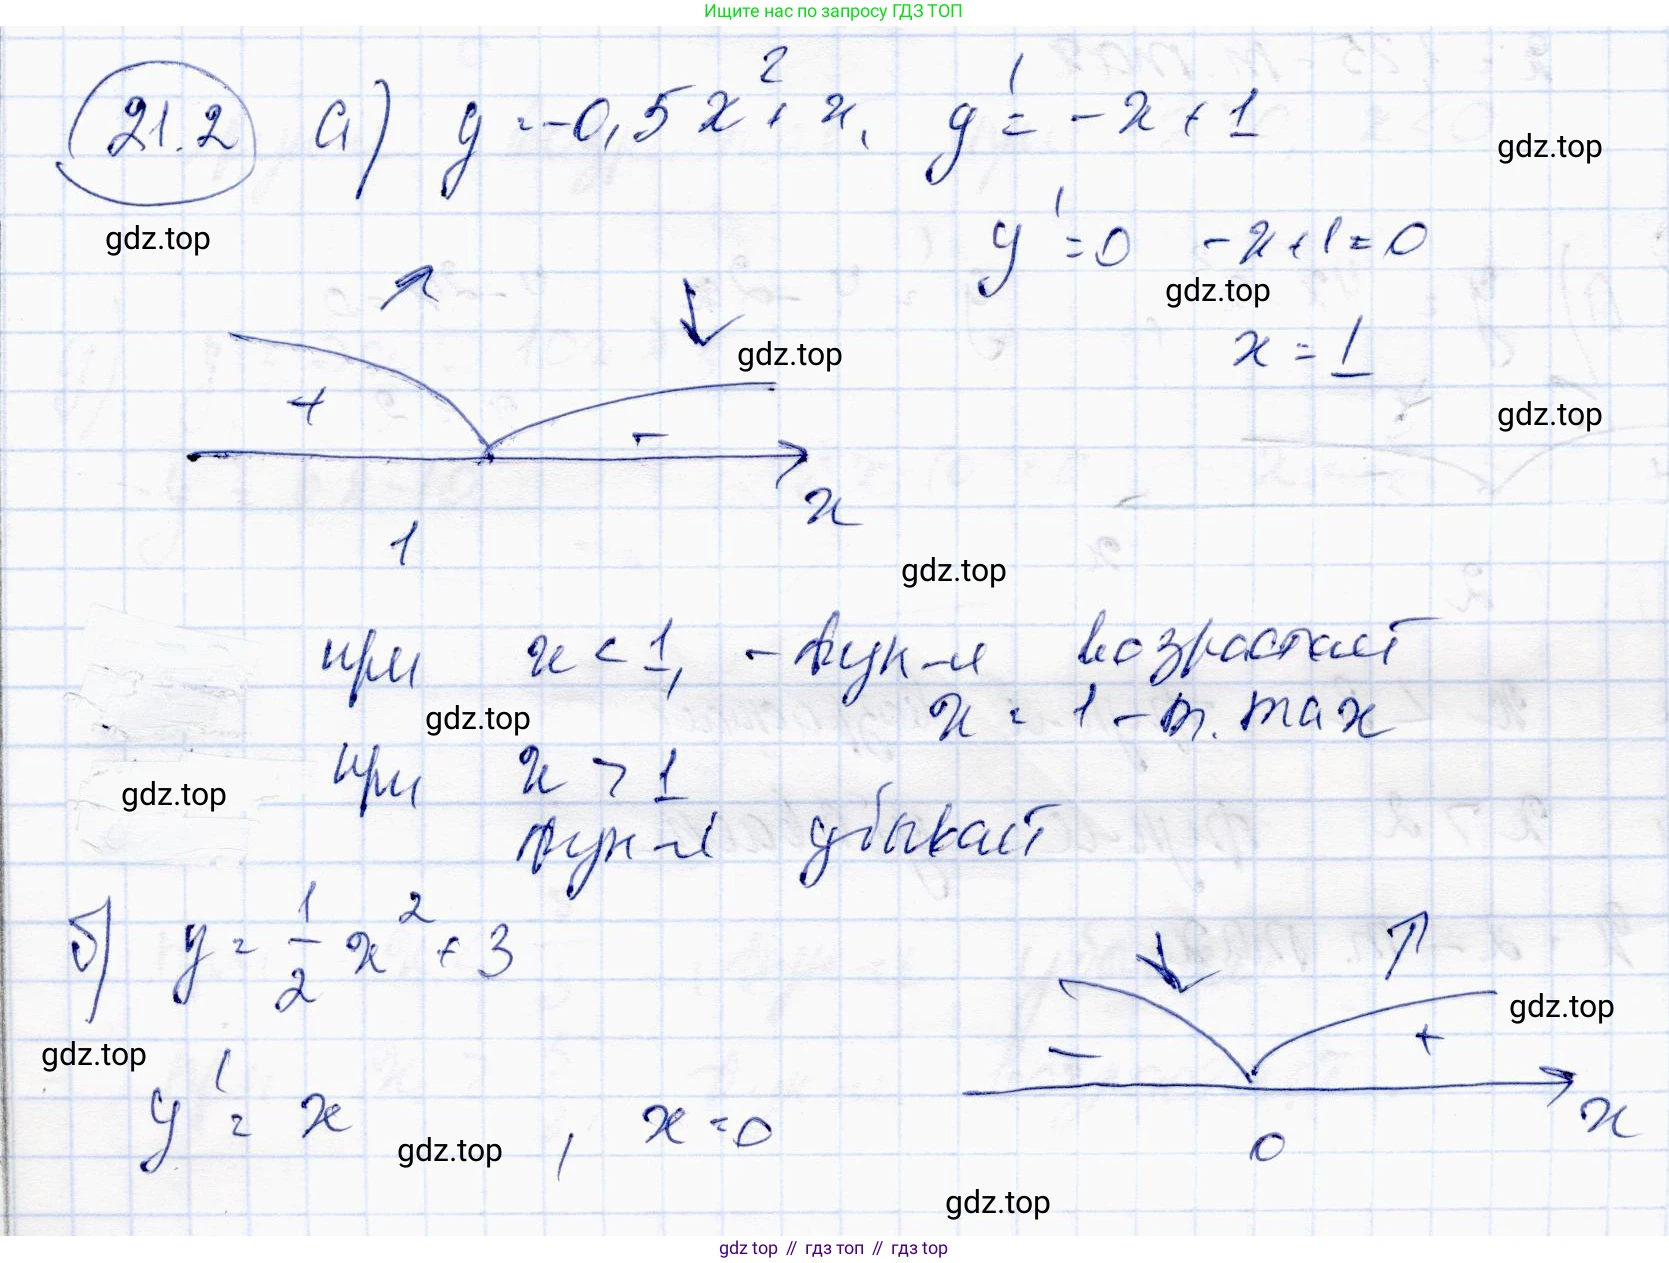 Ищите нас по запросу ГДЗ ТОП
21.2 а) y = -0,5x² + x, y' = -x + 1
gdz.top
gdz.top
y' = 0 -x + 1 = 0
gdz.top
x = 1
gdz.top
gdz.top
+ -
x
1
gdz.top
при x < 1, - функ-я возрастает
x = 1 - т. max
gdz.top
при x > 1
gdz.top
функ-я убывает
б) y = 1/2 x² + 3
gdz.top
- +
gdz.top
x
0
y' = x , x = 0
gdz.top
gdz.top
gdz top // гдз топ // гдз top